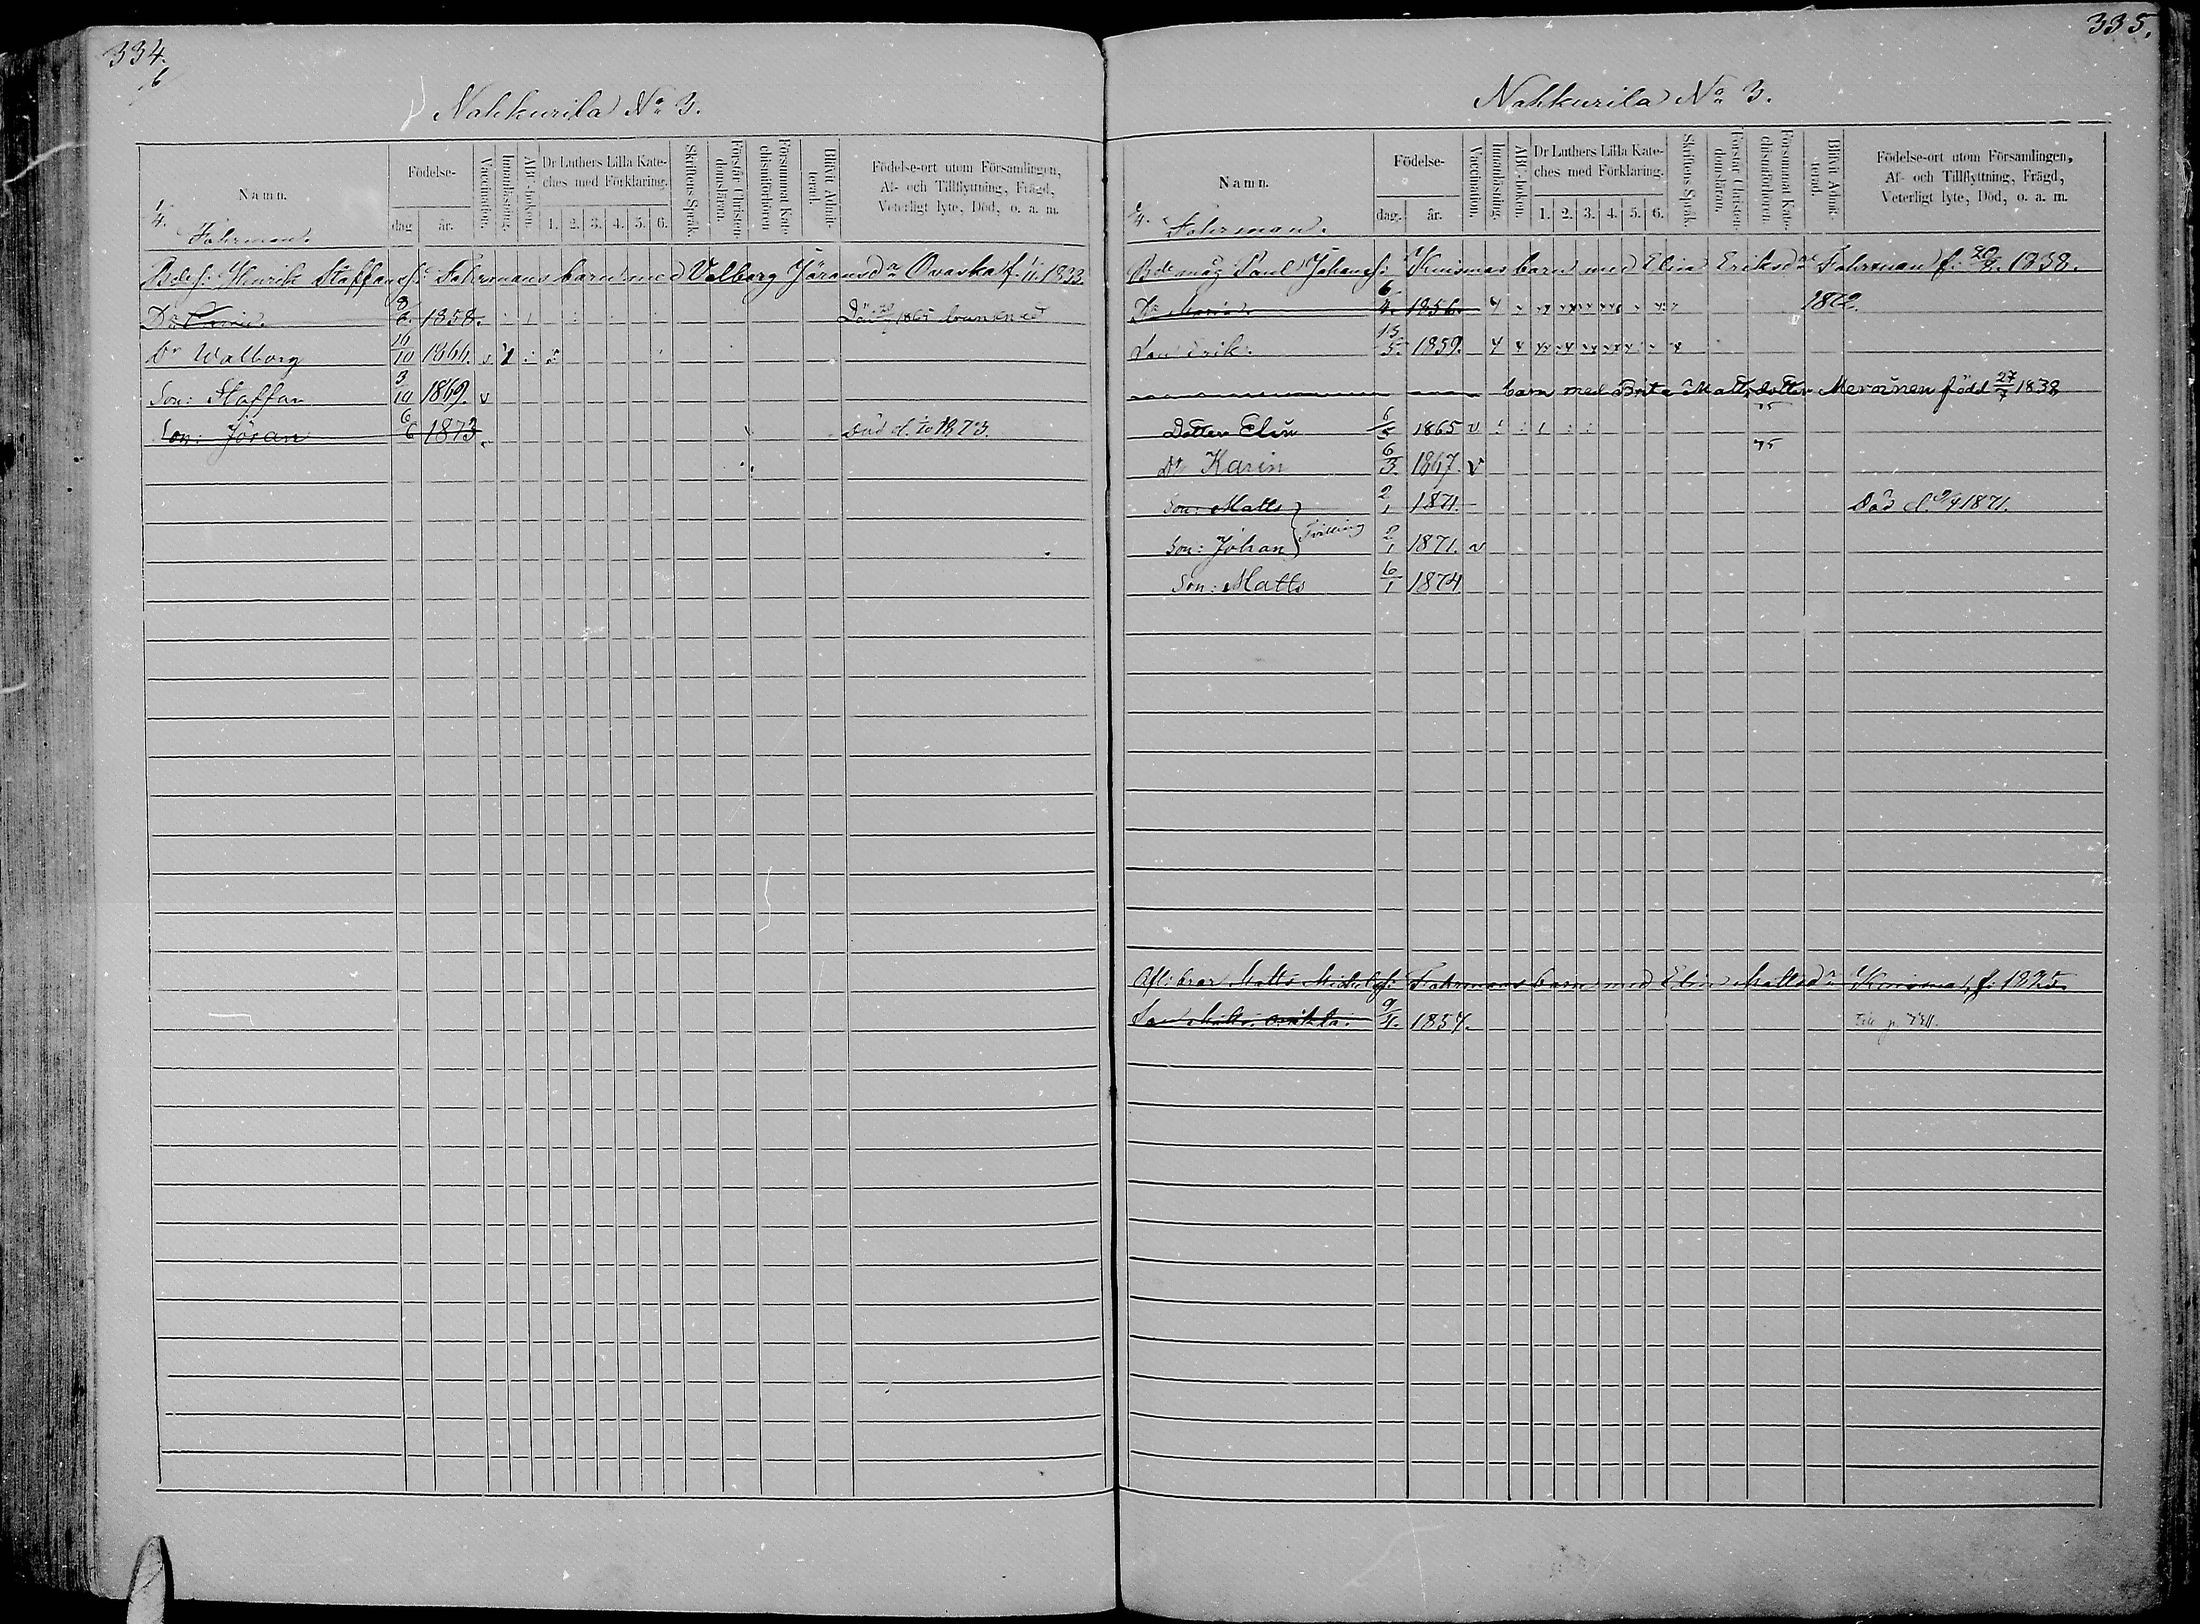 334.
6
Nahkurila No 3.
Namn.
Födelse-
dag
år.
Vaccination.
Innanläsning.
ABC-boken.
Dr Luthers Lilla Kate-
ches med Förklaring.
1. 2. 3. 4. 5. 6.
Skriftens Språk.
Förstår Christen-
domsläran.
Försummat Kate-
chismiförhören.
Blifvit Admit-
terad.
Födelse-ort utom Församlingen,
Af- och Tillflyttning, Frägd,
Veterligt lyte, Död, o. a. m.
1/4.
Fahrman.
Henrik Staffans: Fahrmans barn med Valborg Jöransdr Ovaska f. 1833.
1858. Död 1865
Dr Walborg 16/10 1864. v
Son: Staffan 3/10 1869. v
Son: Jöran 6/6 1873. Död d. 1873.
335.
Nahkurila No 3.
Namn.
Födelse-
dag.
år.
Vaccination.
Innanläsning.
ABC-boken.
Dr Luthers Lilla Kate-
ches med Förklaring.
1. 2. 3. 4. 5. 6.
Skriftens Språk.
Förstår Christen-
domsläran.
Försummat Kate-
chismiförhören.
Blifvit Admit-
terad.
Födelse-ort utom Församlingen,
Af- och Tillflyttning, Frägd,
Veterligt lyte, Död, o. a. m.
1/4.
Fahrman.
måg Paul Johans: Kinismas barn med Elin Eriksdr Fahrman f: 1838.
Maria. 6/4. 1856.
Son Erik. 15/5. 1859.
barn med Brita Mattsdotter Meronen född 27/7 1838
75
Dotter Elin 1865 v
75
Dr Karin 6/3. 1867. v
Son: Matts 2/1 1871. Död d. 9/4 1871.
Tvilling
Son: Johan 2/1 1871. v
Son: Matts 6/1 1874.
Afl: bror Matts Michels: Fahrmans barn med Elin Mattsdr Kinisma, f: 1825.
Son Matts. oäkta. 9/4. 1857.